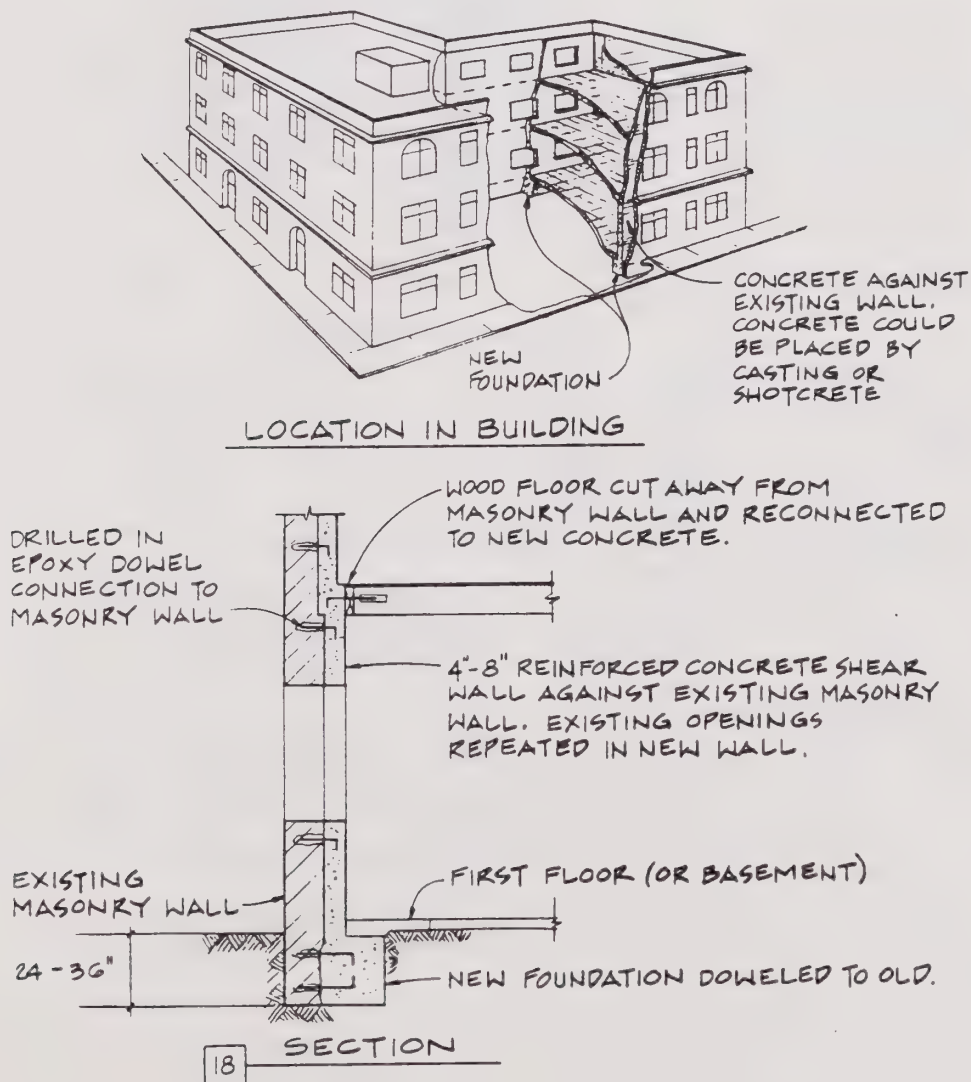 CONCRETE AGAINST
EXISTING WALL.
CONCRETE COULD
BE PLACED BY
CASTING OR
SHOTCRETE
NEW
FOUNDATION
LOCATION IN BUILDING
WOOD FLOOR CUT AWAY FROM
MASONRY WALL AND RECONNECTED
TO NEW CONCRETE.
DRILLED IN
EPOXY DOWEL
CONNECTION TO
MASONRY WALL
4"-8" REINFORCED CONCRETE SHEAR
WALL AGAINST EXISTING MASONRY
WALL. EXISTING OPENINGS
REPEATED IN NEW WALL.
EXISTING
MASONRY WALL
FIRST FLOOR (OR BASEMENT)
24 - 36"
NEW FOUNDATION DOWELED TO OLD.
18 SECTION